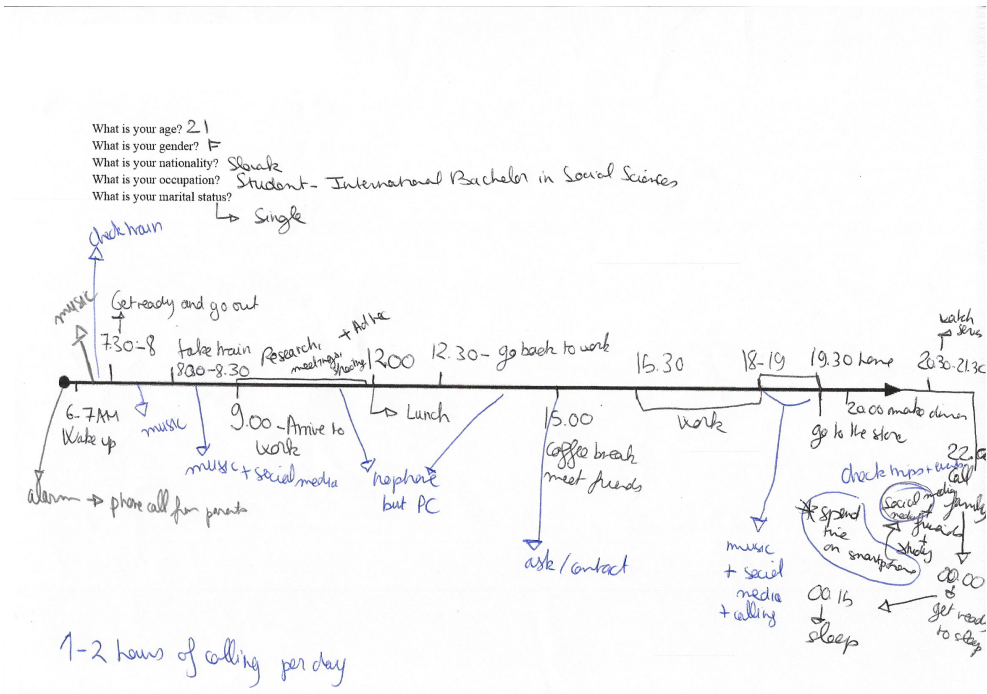 What is your age? 21
What is your gender? F
What is your nationality? Slovak
What is your occupation? Student - International Bachelor in Social Sciences
What is your marital status?
↳ Single
check train
music
Get ready and go out
7.30-8
take train
8.00-8.30
Research,
meetings,
+ Ad hoc
12.00
12.30 - go back to work
15.30
18-19
19.30 home
watch
series
20.30-21.30
6-7AM
Wake up
music
9.00 - Arrive to
work
Lunch
15.00
coffee break
meet friends
work
20.00 make dinner
go to the store
music + social media
no phone
but PC
alarm → phone call from parents
ask/contact
music
+ social
media
+ calling
check maps +
* spend
time
on smartphone
social media
friends
+
22.
call
family
00.00
get ready
to sleep
00.15
sleep
1-2 hours of calling per day